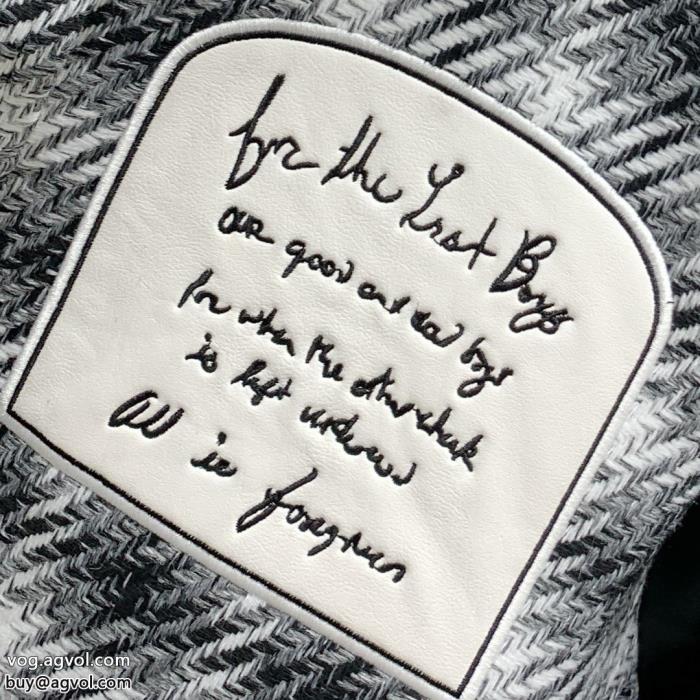 for the Lost Boys
our good and bad boys
for when the other cheek
is left unkissed
All is forgiven
vog.agvol.com
buy@agvol.com